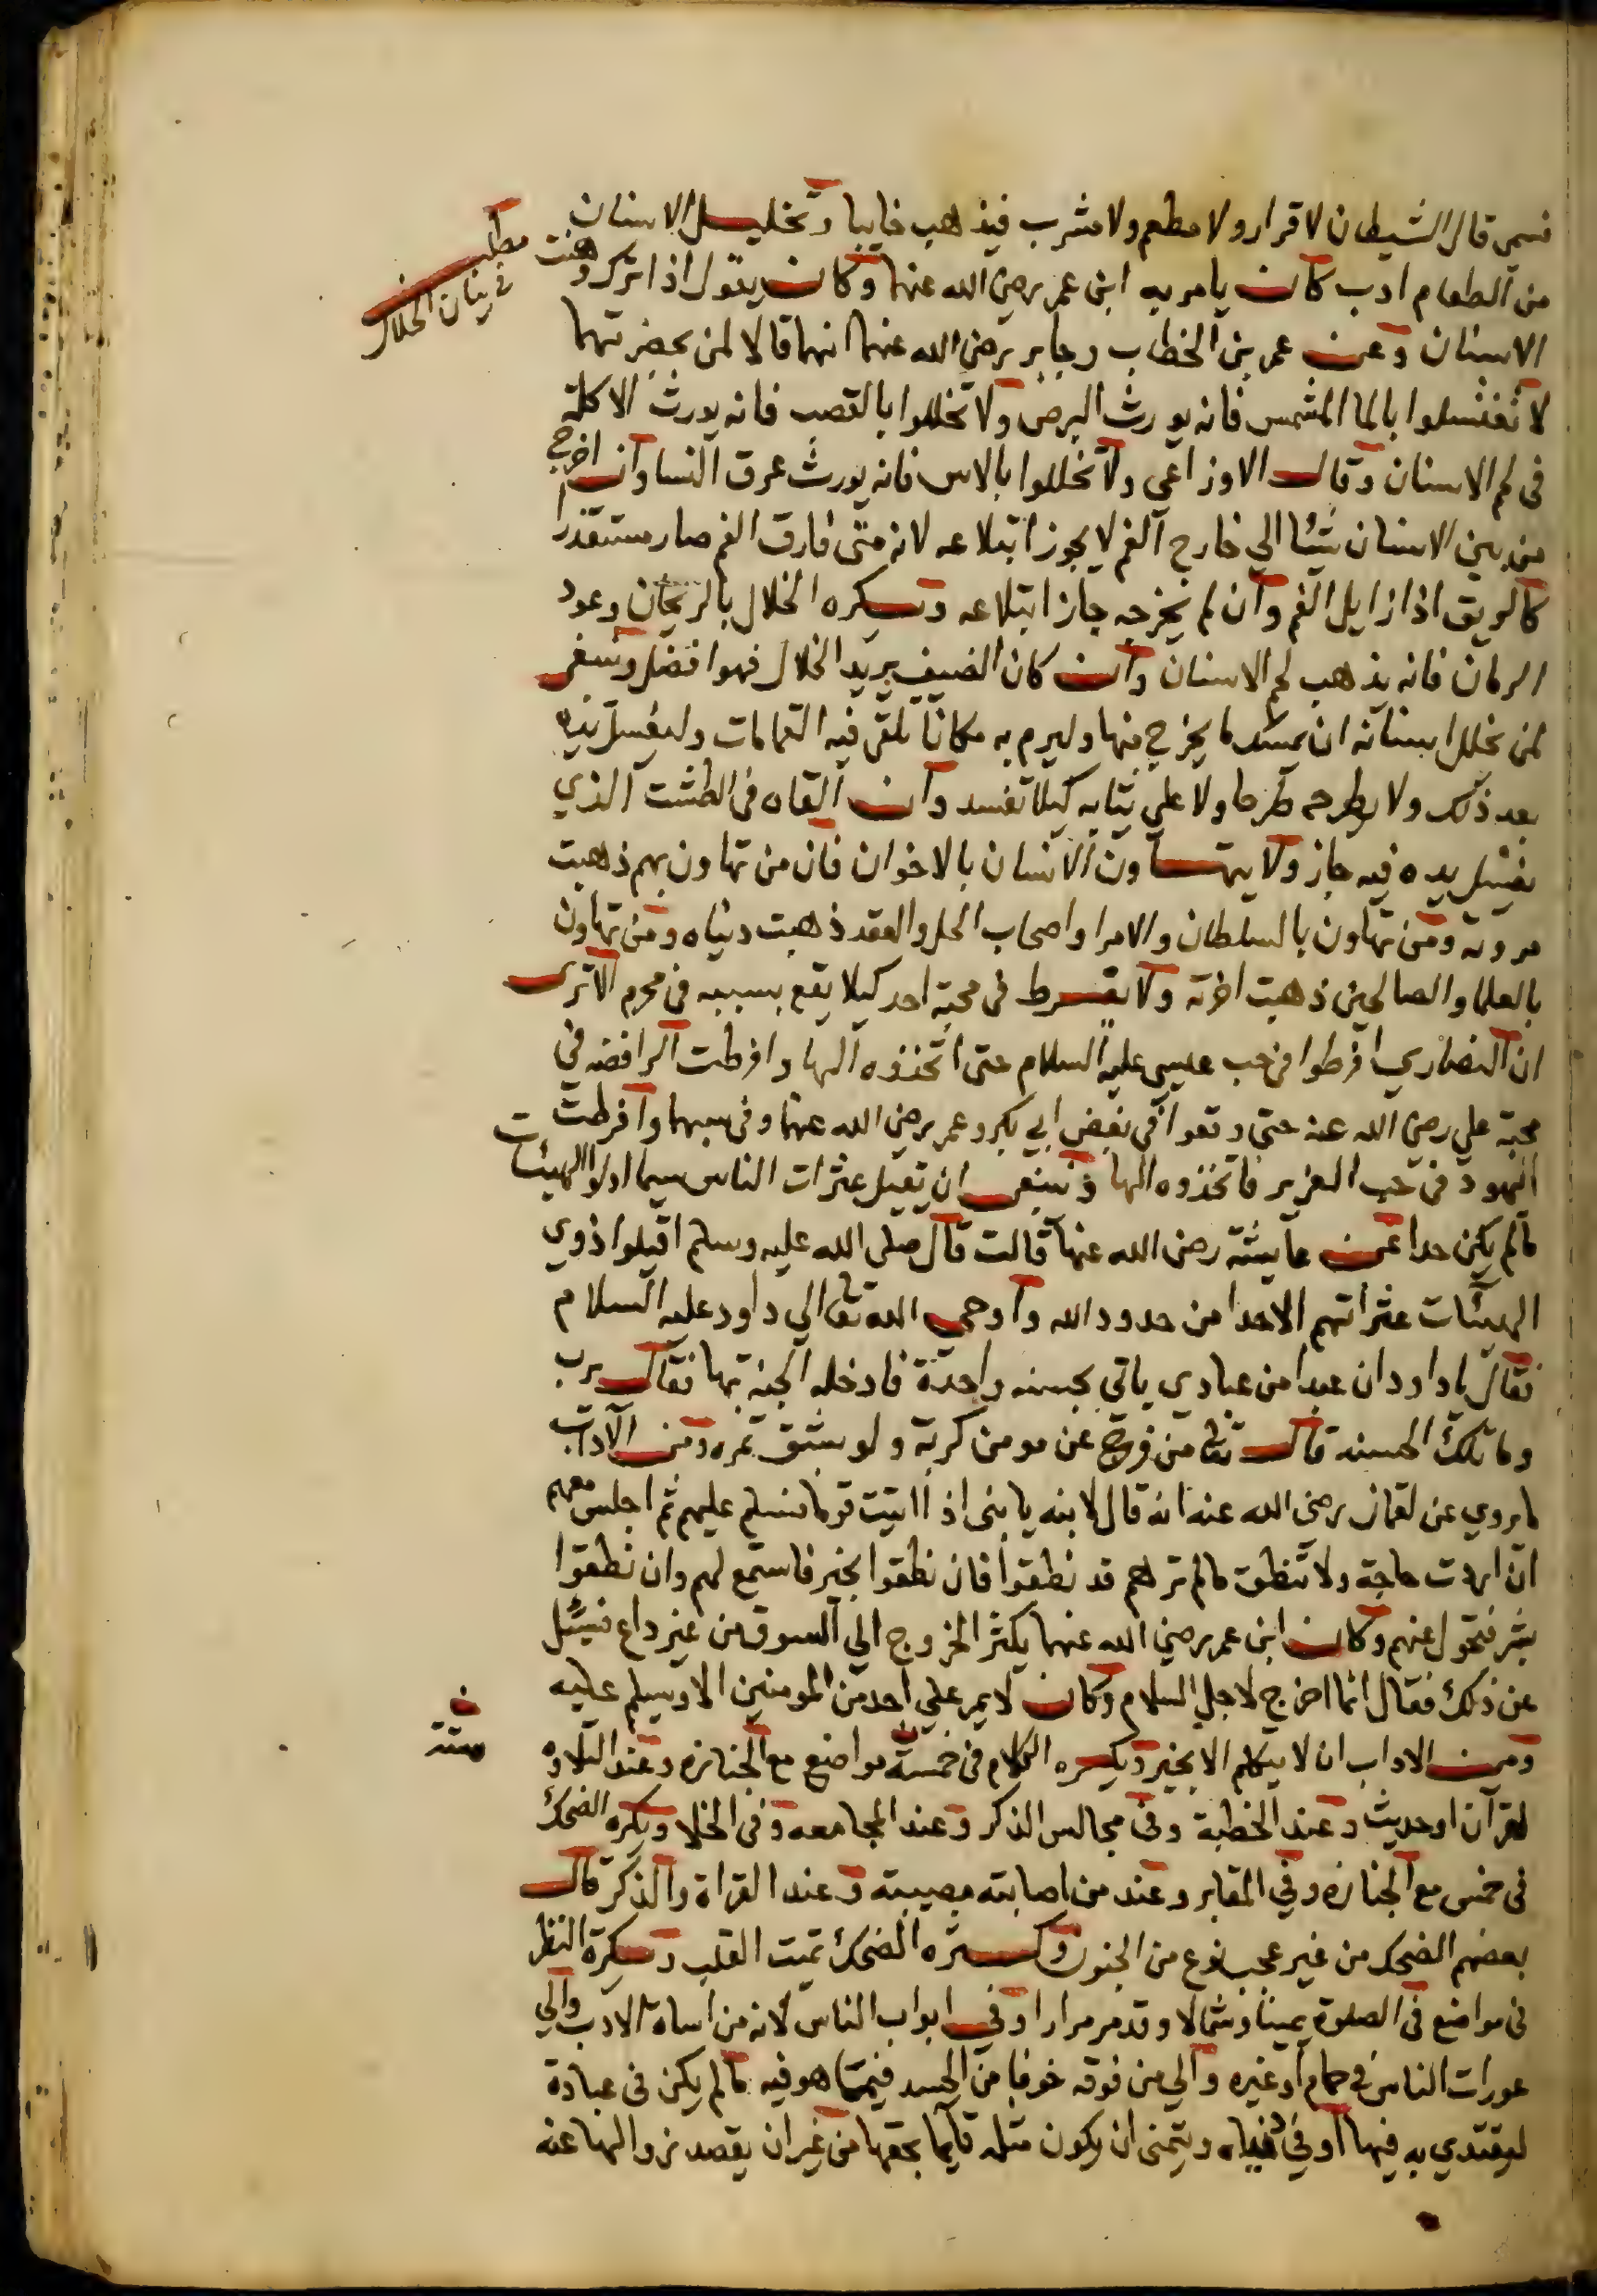 فسمى قال الشيطان لا قرار ولا مطعم ولا مشرب فيذهب خايبا وتخليل الاسنان
من الطعام ادب كان يامر به ابن عمر رضي الله عنهما وكان يقول اذا ترك وهنت
الاسنان وعن عمر بن الخطاب وجابر رضي الله عنهما انهما قالا لمن بحضرتهما
لا تغتسلوا بالما المشمس فانه يورث البرص ولا تخللوا بالقصب فانه يورث الاكلة
في لحم الاسنان وقال الاوزاعي ولا تخللوا بالاس فانه يورث عرق النسا وان اخرج
من بين الاسنان شيئا الي خارج الفم لا يجوز ابتلاعه لانه متى فارق الفم صار مستقذرا
كالريق اذا زايل الفم وان لم يخرجه جاز ابتلاعه ويكره الخلال بالريحان وعود
الرمان فانه يذهب لحم الاسنان وان كان الضيف يريد الخلال فهو افضل وينبغي
لمن تخلل اسنانه ان يمسك ما يخرج منها وليرم به مكانا تلقى فيه القمامات وليغسل يديه
بعد ذلك ولا يطرحه طرحا ولا علي ثيابه كيلا تفسد وان القاه في الطشت الذي
يغسل يده فيه جاز ولا يتهاون الانسان بالاخوان فان من تهاون بهم ذهبت
مروته ومن تهاون بالسلطان والامرا واصحاب الحل والعقد ذهبت دنياه ومن تهاون
بالعلما والصالحين ذهبت اخرته ولا يفرط في محبة احد كيلا يقع بسببه في محرم الا ترى
ان النصاري افرطوا في حب عيسى عليه السلام حتى اتخذوه الها وافرطت الرافضه في
محبة علي رضي الله عنه حتى وقعوا في بغض ابي بكر وعمر رضي الله عنهما وفي سبهما وافرطت
اليهود في حب العزير فاتخذوه الها وينبغي ان تقيل عثرات الناس سيما اولوا الهيئات
ما لم يكن حدا عن عايشة رضي الله عنها قالت قال صلى الله عليه وسلم اقيلوا ذوي
الهيئات عثراتهم الا حدا من حدود الله واوحى الله تعالي الي داود عليه السلام
فقال يا داود ان عبدا من عبادي ياتي بحسنه واحدة فادخله الجنة بها فقال يرب
وما تلك الحسنه قال تعالى من فرج عن مومن كربة ولو بشق تمره ومن الآداب
ما روي عن لقمان رضي الله عنه انه قال لابنه يا بني اذا اتيت قوما فسلم عليهم ثم اجلس معهم
ان اردت حاجة ولا تنطق ما لم ترهم قد نطقوا فان نطقوا بخير فاستمع لهم وان نطقوا
بشر فتحول عنهم وكان ابن عمر رضي الله عنهما يكثر الخروج الي السوق من غير داع فسئل
عن ذلك فقال انما اخرج لاجل السلام وكان لا يمر علي احد من المومنين الا ويسلم عليه
ومن الاداب ان لا يتكلم الا بخير ويكره الكلام في خمسة مواضع مع الجنازه وعند التلاوه
لقرآن او حديث وعند الخطبة وفي مجالس الذكر وعند المجامعه وفي الخلا ويكره الضحك
في خمس مع الجنازه وفي المقابر وعند من اصابته مصيبة وعند القراة والذكر قال
بعضهم الضحك من غير عجب نوع من الجنون وكثره الضحك تميت القلب ويكره النظر
في مواضع في الصلوة يمينا وشمالا وقد مر مرارا وفي ابواب الناس لانه من اساة الادب والي
عورات الناس في حمام او غيره والي من فوقه خوفا من الحسد فيما هو فيه ما لم يكن في عبادة
ليقتدي به فيها او في دنياه ويتمنى ان يكون مثله قايما بحقها من غير ان يقصد زوالها عنه
مطلب
في بيان الخلال
خ
ستة